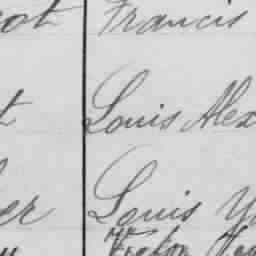 ot Francis
t Louis Alex
er Louis
Victor